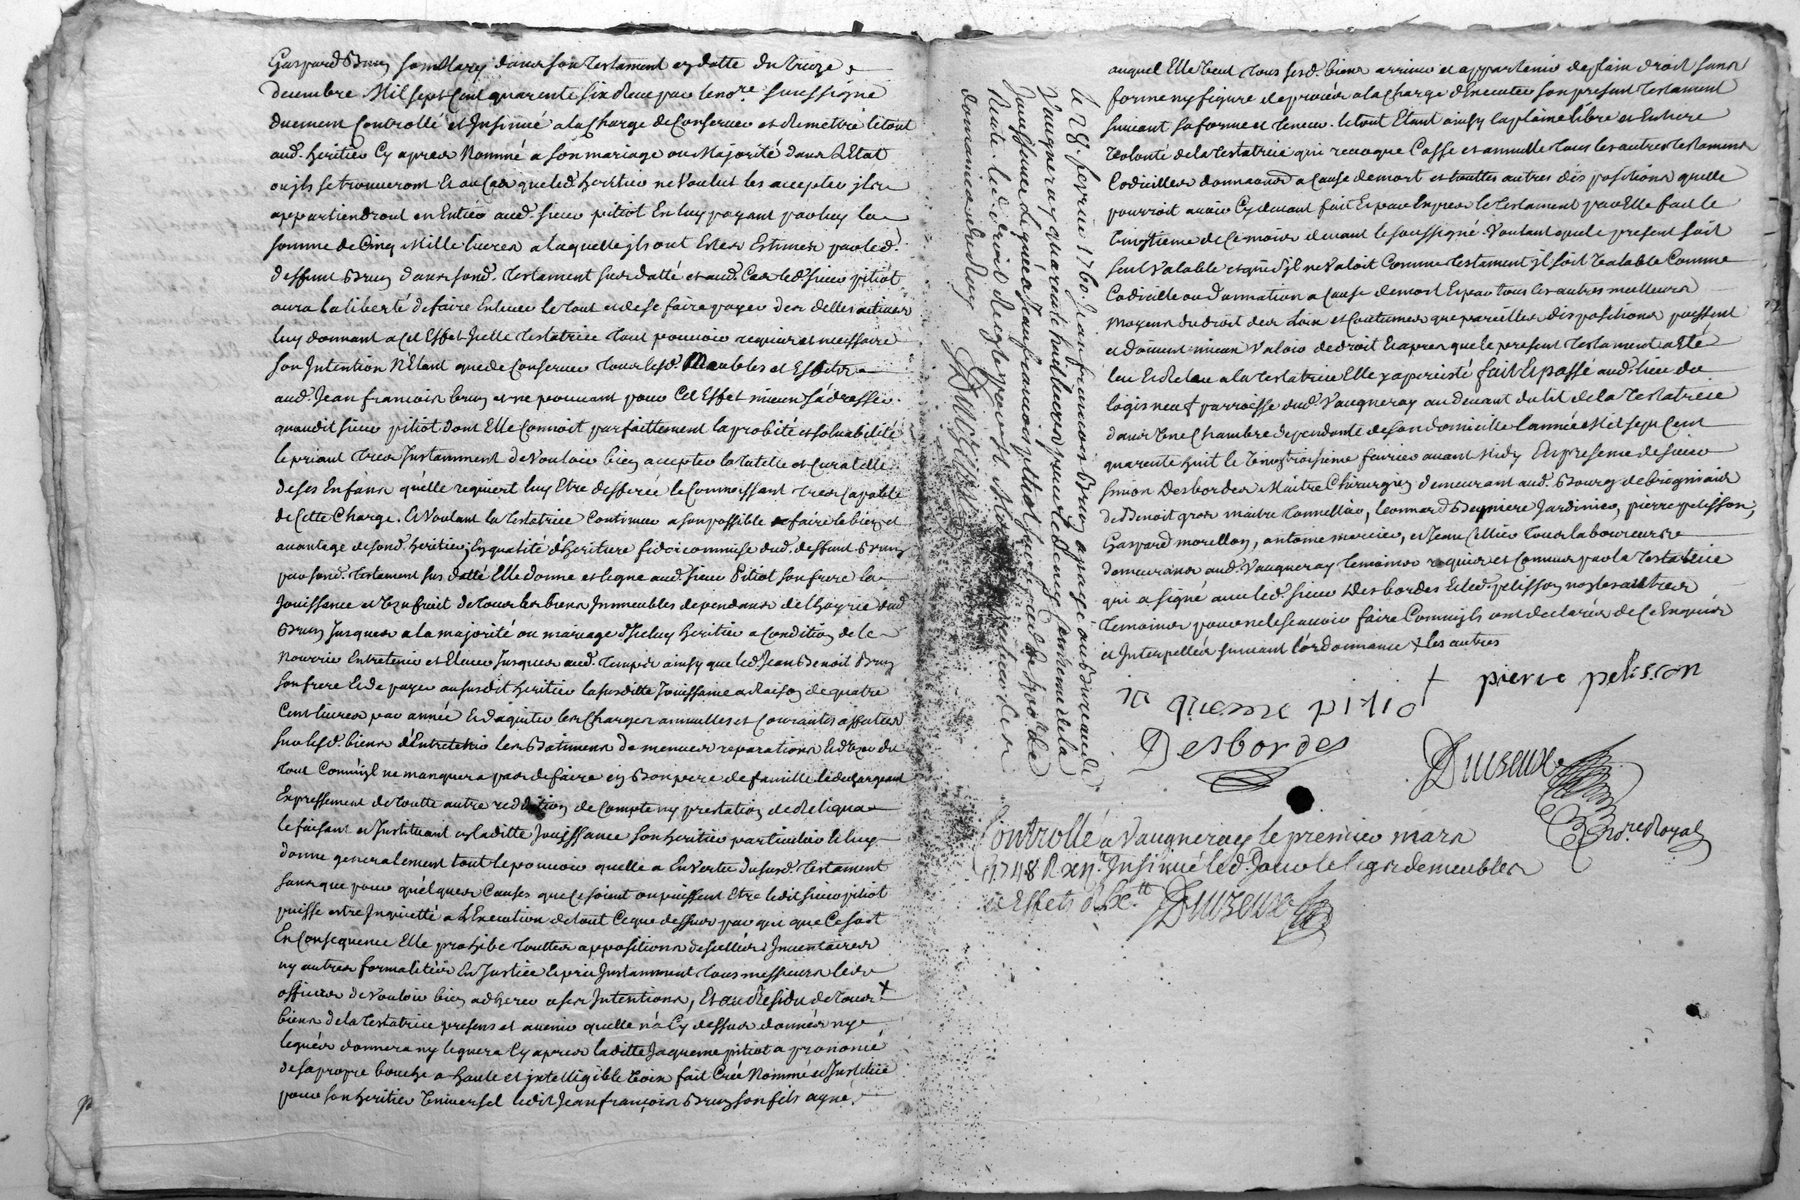 Gaspard Brun son Mary dans son testament en datte du treize
decembre Mil sept Cent quarente six Receu par le no.re soussigné
duement Controllé et Insinué a la Charge de Conserver et Remettre le tout
aud. heritier Cy apres Nommé a son mariage ou Majorité dans L'Etat
ou ils se trouveront Et au Cas que led. heritier ne Voulut les accepter ils
appartiendront en Entier aud. sieur pitiot En luy payant par luy la
somme de Cinq Mille livres a laquelle ils ont Estes Estimés par led.
deffunt Brun dans sond. testament sus datté et aud. Cas led. sieur pitiot
aura la liberté de faire Enlever le tout et de se faire payer des dettes actives
luy donnant a Cet Effet Jcelle testatrice tout pouvoir requis et necessaire
son Intention N'Etant que de Conserver tous lesd. Meubles et Effets
aud. Jean francois brun et ne pouvant pour Cet Effet mieux s'adresser
quaudit sieur pitiot dont Elle Connoit parfaittement la probité et solvabilité
le priant tres Instamment de Vouloir bien accepter la tutelle et Curatelle
de ses Enfans quélle requiert luy Etre defferée le Connoissant tres Capable
de Cette Charge. Et Voulant la testatrice Continuer a son possible a faire le bien et
avantage de sond. heritier En qualité d'heritiere fideicommise dud. deffunt Brun
par sond. testament sus datté Elle donne et legue aud. sieur Pitiot son frere la
Jouissance et Uzufruit de tous les biens Immeubles dependans de l'hoyrie dud.
Brun Jusques a la majorité ou mariage d'Iceluy heritier a Condition de le
Nourrir Entretenir et Elever Jusques aud. temps ainsy que led. Jean Benoit Brun
son frere Et de payer au susdit heritier la susditte Jouissance a Raison de quatre
Cent livres par année Et d'aquiter les Charges annuelles et Courantes affectées
sur lesd. biens d'Entretenir les Batimens de menues reparations Et d'user du
tout Comm'il ne manquera pas de faire en Bon pere de famille le dechargeant
Expressement de toutte autre reddition de Compte ny prestation de Reliqua
le faisant et Instituant en laditte Jouissance son heritier particulier Et luy
donne generalement tout le pouvoir quelle a En Vertu du susd. testament
sans que pour quélques Causes que ce soient ou puissent Etre ledit sieur pitiot
puisse estre Inquietté a L'Execution de tout Ce que dessus par qui que Ce soit
En Consequence Elle prohibe touttes appositions de scellés Inventaires
ny autres formalités En Justice Et prie Instamment tous messieurs les
officiers de Vouloir bien adherer a ses Intentions, Et au Residu de tous ✗
biens de la testatrice presens et avenir quelle n'a Cy dessus donnés ny
legués donnera ny leguera Cy apres laditte Jaqueme pitiot a prononcé
de sa propre bouche a haute et jntelligible Voix fait Creé Nommé et Institué
pour son heritier Universel ledit Jean françois Brun son fils ayné,
le 28. fevrier 1760. Jean francois Brun a payé au Bureau de
Vaugneray quarante huit livres pour le Centieme denier de la
Jouissance leguée a Jean francois pitiot
domaines du Roy Duizeux
auquel Elle Veut tous sesd. biens arriver et appartenir de plain droit sans
forme ny figure de procès a la Charge d'Executer son present testament
suivant sa forme et teneur. le tout Etant ainsy la plaine libre et Entiere
Volonté de la testatrice qui revoque Casse et annulle tous les autres testamens
Codicilles donnations a Cause de mort et touttes autres dispositions quelle
pourroit avoir Cy devant fait Et par Expres le testament par Elle fait le
Vingtieme de Ce mois devant le soussigné. Voulant que le present soit
seul Valable et que s'jl ne Valoit Comme testament jl soit Valable Comme
Codicille ou Donnation a Cause de mort Et par tous les autres meilleurs
Moyens du droit des Loix et Coutumes que pareilles dispositions puissent
et doivent mieux Valoir de droit Et apres que le present testament a Eté
leu Et Releu a la testatrice Elle y a persisté fait Et passé aud. lieu du
logis neuf parroisse dud. Vaugneray au devant du lit de la testatrice
dans Une Chambre dependante de son domicille l'année Mil sept Cent
quarente huit le Vingt troisieme fevrier avant Midy En presence de sieur
Simon Desbordes Maitre Chirurgien demeurant aud. Bourg de brignais
de Benoit gros maitre tonnellier, Leonnard Brunniere Jardinier, pierre pelisson,
Gaspard morellon, antoine mercier, et Jean Cellier tous laboureurs
demeurans aud. Vaugneray temoins requis et Connus par la testatrice
qui a signé avec led. sieur Desbordes Et led. pelisson non les autres
temoins pour ne le scavoir faire Comm'ils ont declarés de Ce Enquis
et Interpellés suivant l'ordonnance ✗ les autres
ja queme pitiot ✗ pierre pelisson
Desbordes
Duizeux
No.re Royal
Controllé a Vaugneray le premier mars
1748 Insinué led. Jour le legs de meubles
et Effets Duizeux